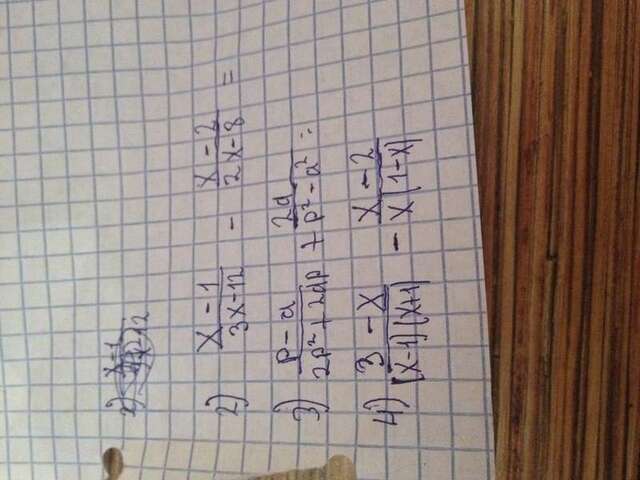 2) x - 1
2) x - 1 / 3x - 12 - x - 2 / 2x - 8 =
3) p - a / 2p² + 2ap + 2a / p² - a² =
4) 3 - x / (x-1)(x+1) - x - 2 / x(1-x)